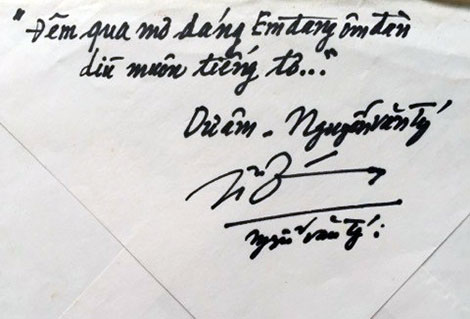 "Đêm qua mơ dáng Em đang ôm đàn
dìu muôn tiếng tơ..."
Dư âm - Nguyễn Văn Tý
Nguễ Văn Tý: